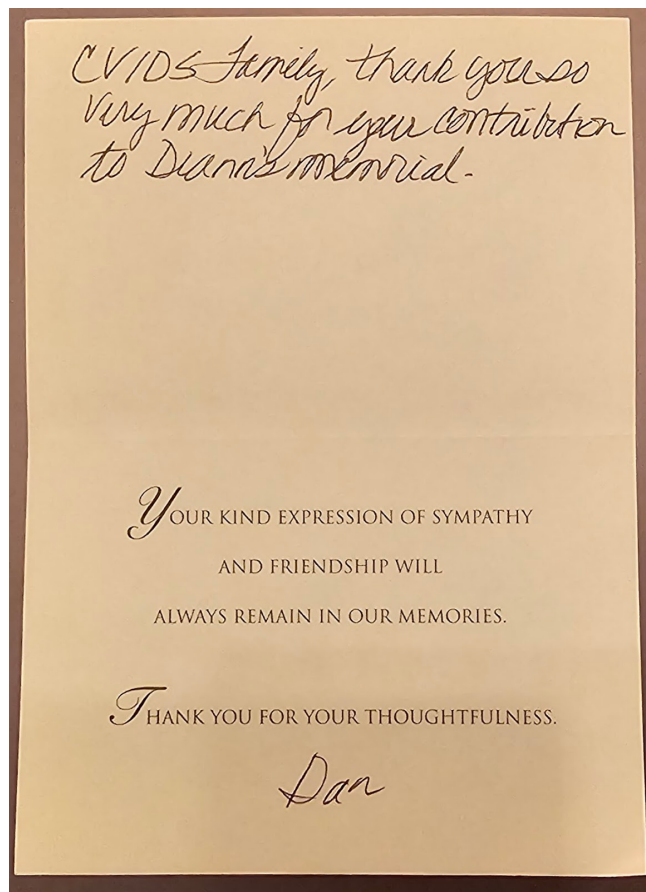 CVIDS Family, thank you so
very much for your contribution
to Diann's memorial.
YOUR KIND EXPRESSION OF SYMPATHY
AND FRIENDSHIP WILL
ALWAYS REMAIN IN OUR MEMORIES.
THANK YOU FOR YOUR THOUGHTFULNESS.
Dan